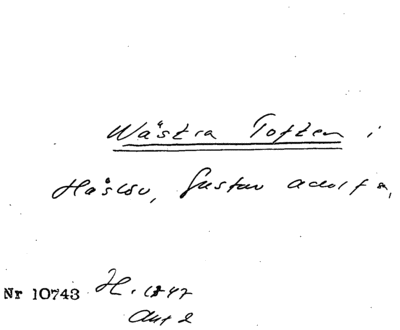 Wästra Toften i
Håslöv, Gustav Adolf s,
Nr 10743 H. 1847
Ant 2